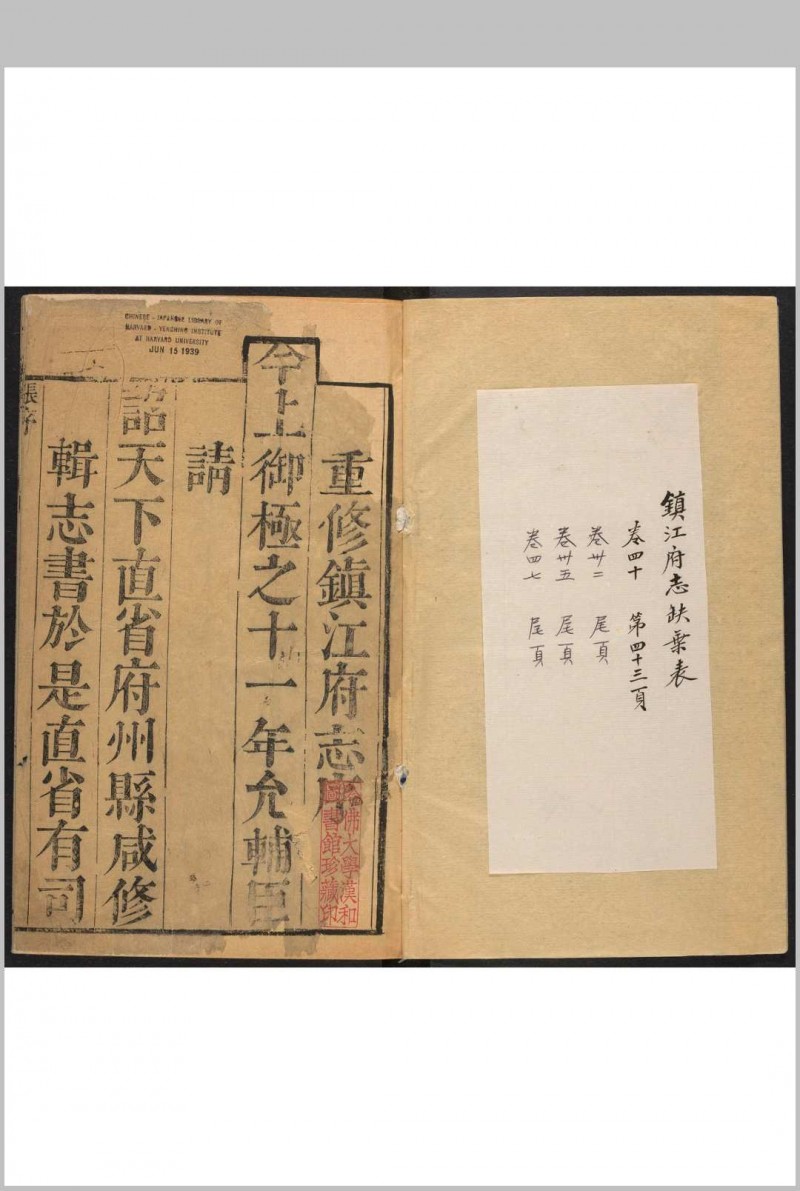 鎮江府志缺葉表
卷四十 第四十三頁
卷卅二 尾頁
卷卅五 尾頁
卷四七 尾頁
重修鎮江府志序
今上御極之十一年允輔臣
請
詔天下直省府州縣咸修
輯志書於是直省有司
張序
CHINESE - JAPANESE LIBRARY OF
HARVARD - YENCHING INSTITUTE
AT HARVARD UNIVERSITY
JUN 15 1939
哈佛大學漢和
圖書館珍藏印